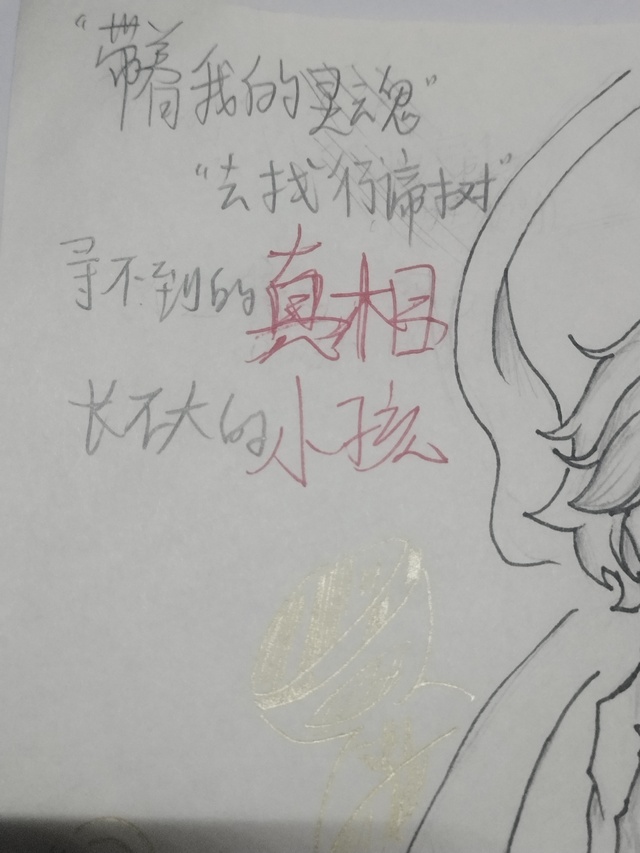 “带着我的灵魂”
“去找行谛树”
寻不到的真相
长不大的小孩